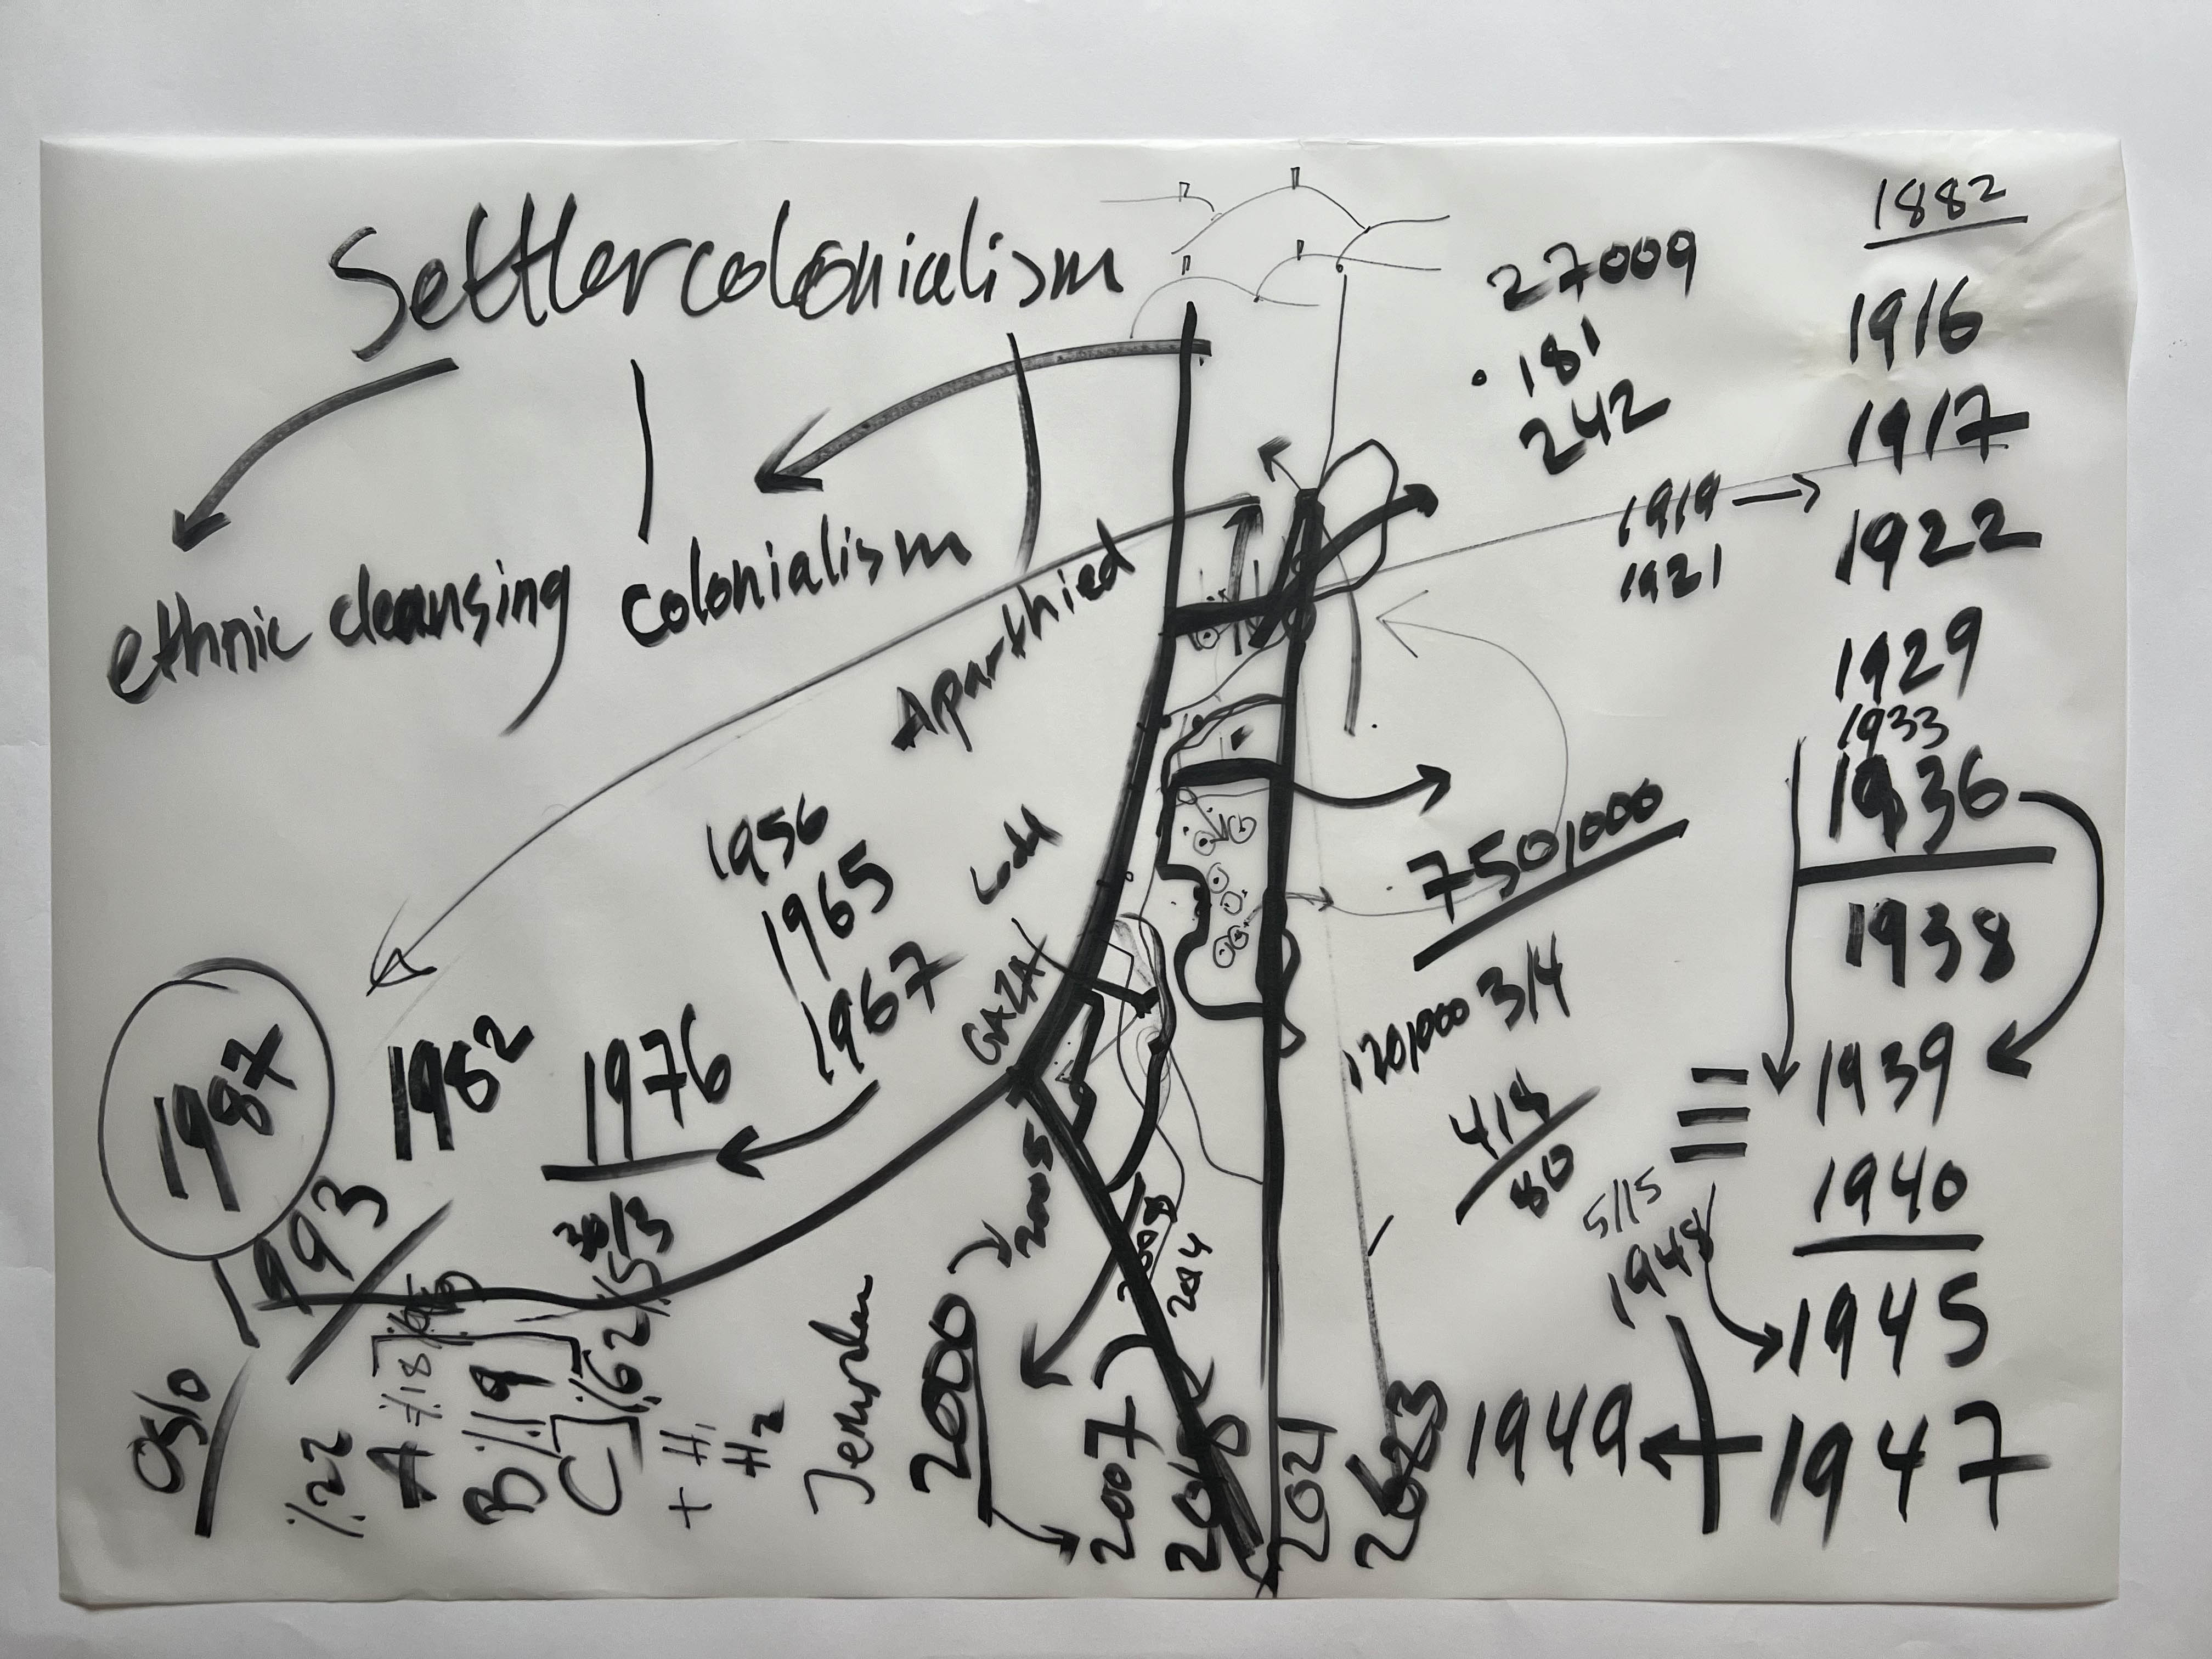 Settler colonialism
ethnic cleansing
colonialism
Aparthied
27009
181
242
1882
1916
1917
1919 → 1922
1921
1929
1933
1936
1938
1939
1940
1945
1947
5/15
1948
1949
750,000
120,000 3/4
80
1956
1965
1967
Lodd
GAZA
1976
30/3
1982
1987
1993
Oslo
%22
A %18
B %19
C %62
+ H1
H2
2000
2005
2007
2008
2014
2021
2023